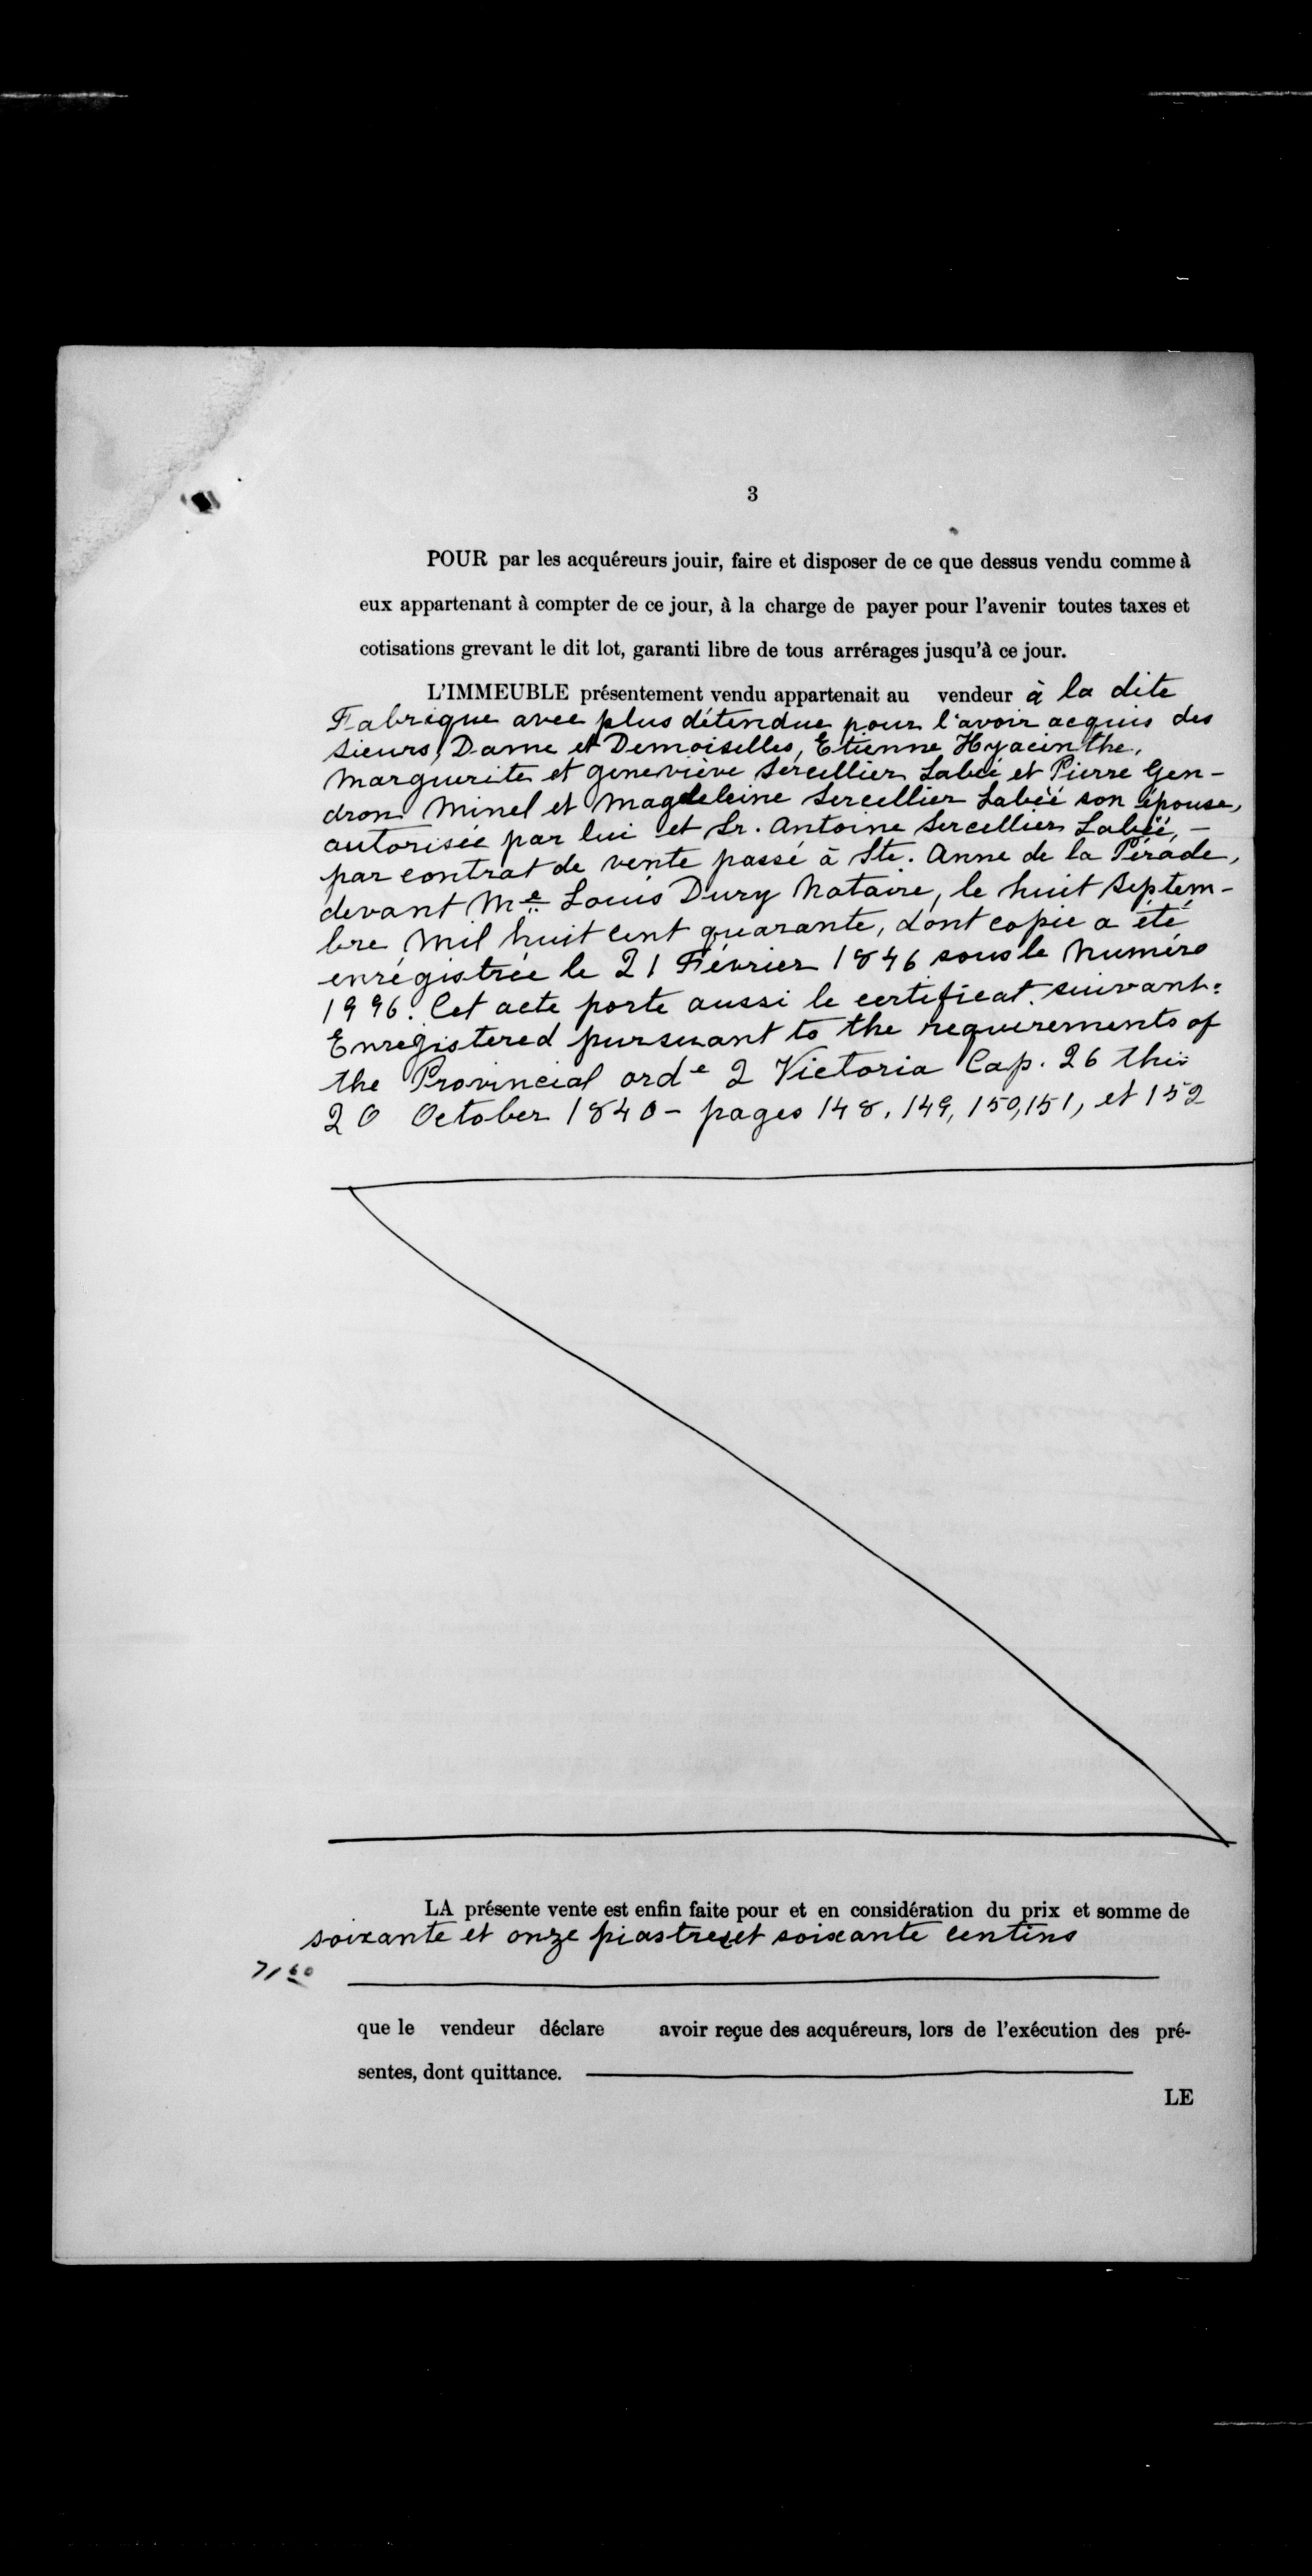 3
POUR par les acquéreurs jouir, faire et disposer de ce que dessus vendu comme à
eux appartenant à compter de ce jour, à la charge de payer pour l'avenir toutes taxes et
cotisations grevant le dit lot, garanti libre de tous arrérages jusqu'à ce jour.
L'IMMEUBLE présentement vendu appartenait au vendeur à la dite
Fabrique avec plus d'étendue pour l'avoir acquis des
Sieurs, Dame et Demoiselles, Etienne Hyacinthe,
Marguerite et Geneviève Sercellier Labéé et Pierre Gen-
dron Minel et Magdeleine Sercellier Labéé son épouse,
autorisée par lui et Sr. Antoine Sercellier Labéé, -
par contrat de vente passé à Ste. Anne de la Pérade,
devant Me Louis Dury Notaire, le huit Septem-
bre mil huit cent quarante, dont copie a été
enrégistrée le 21 Février 1846 sous le Numéro
1996. Cet acte porte aussi le certificat suivant:
Enregistered pursuant to the requerements of
the Provincial orde 2 Victoria Cap. 26 this
20 October 1840 - pages 148, 149, 150, 151, et 152
LA présente vente est enfin faite pour et en considération du prix et somme de
soixante et onze piastres et soixante centins
71 60
que le vendeur déclare avoir reçue des acquéreurs, lors de l'exécution des pré-
sentes, dont quittance.
LE